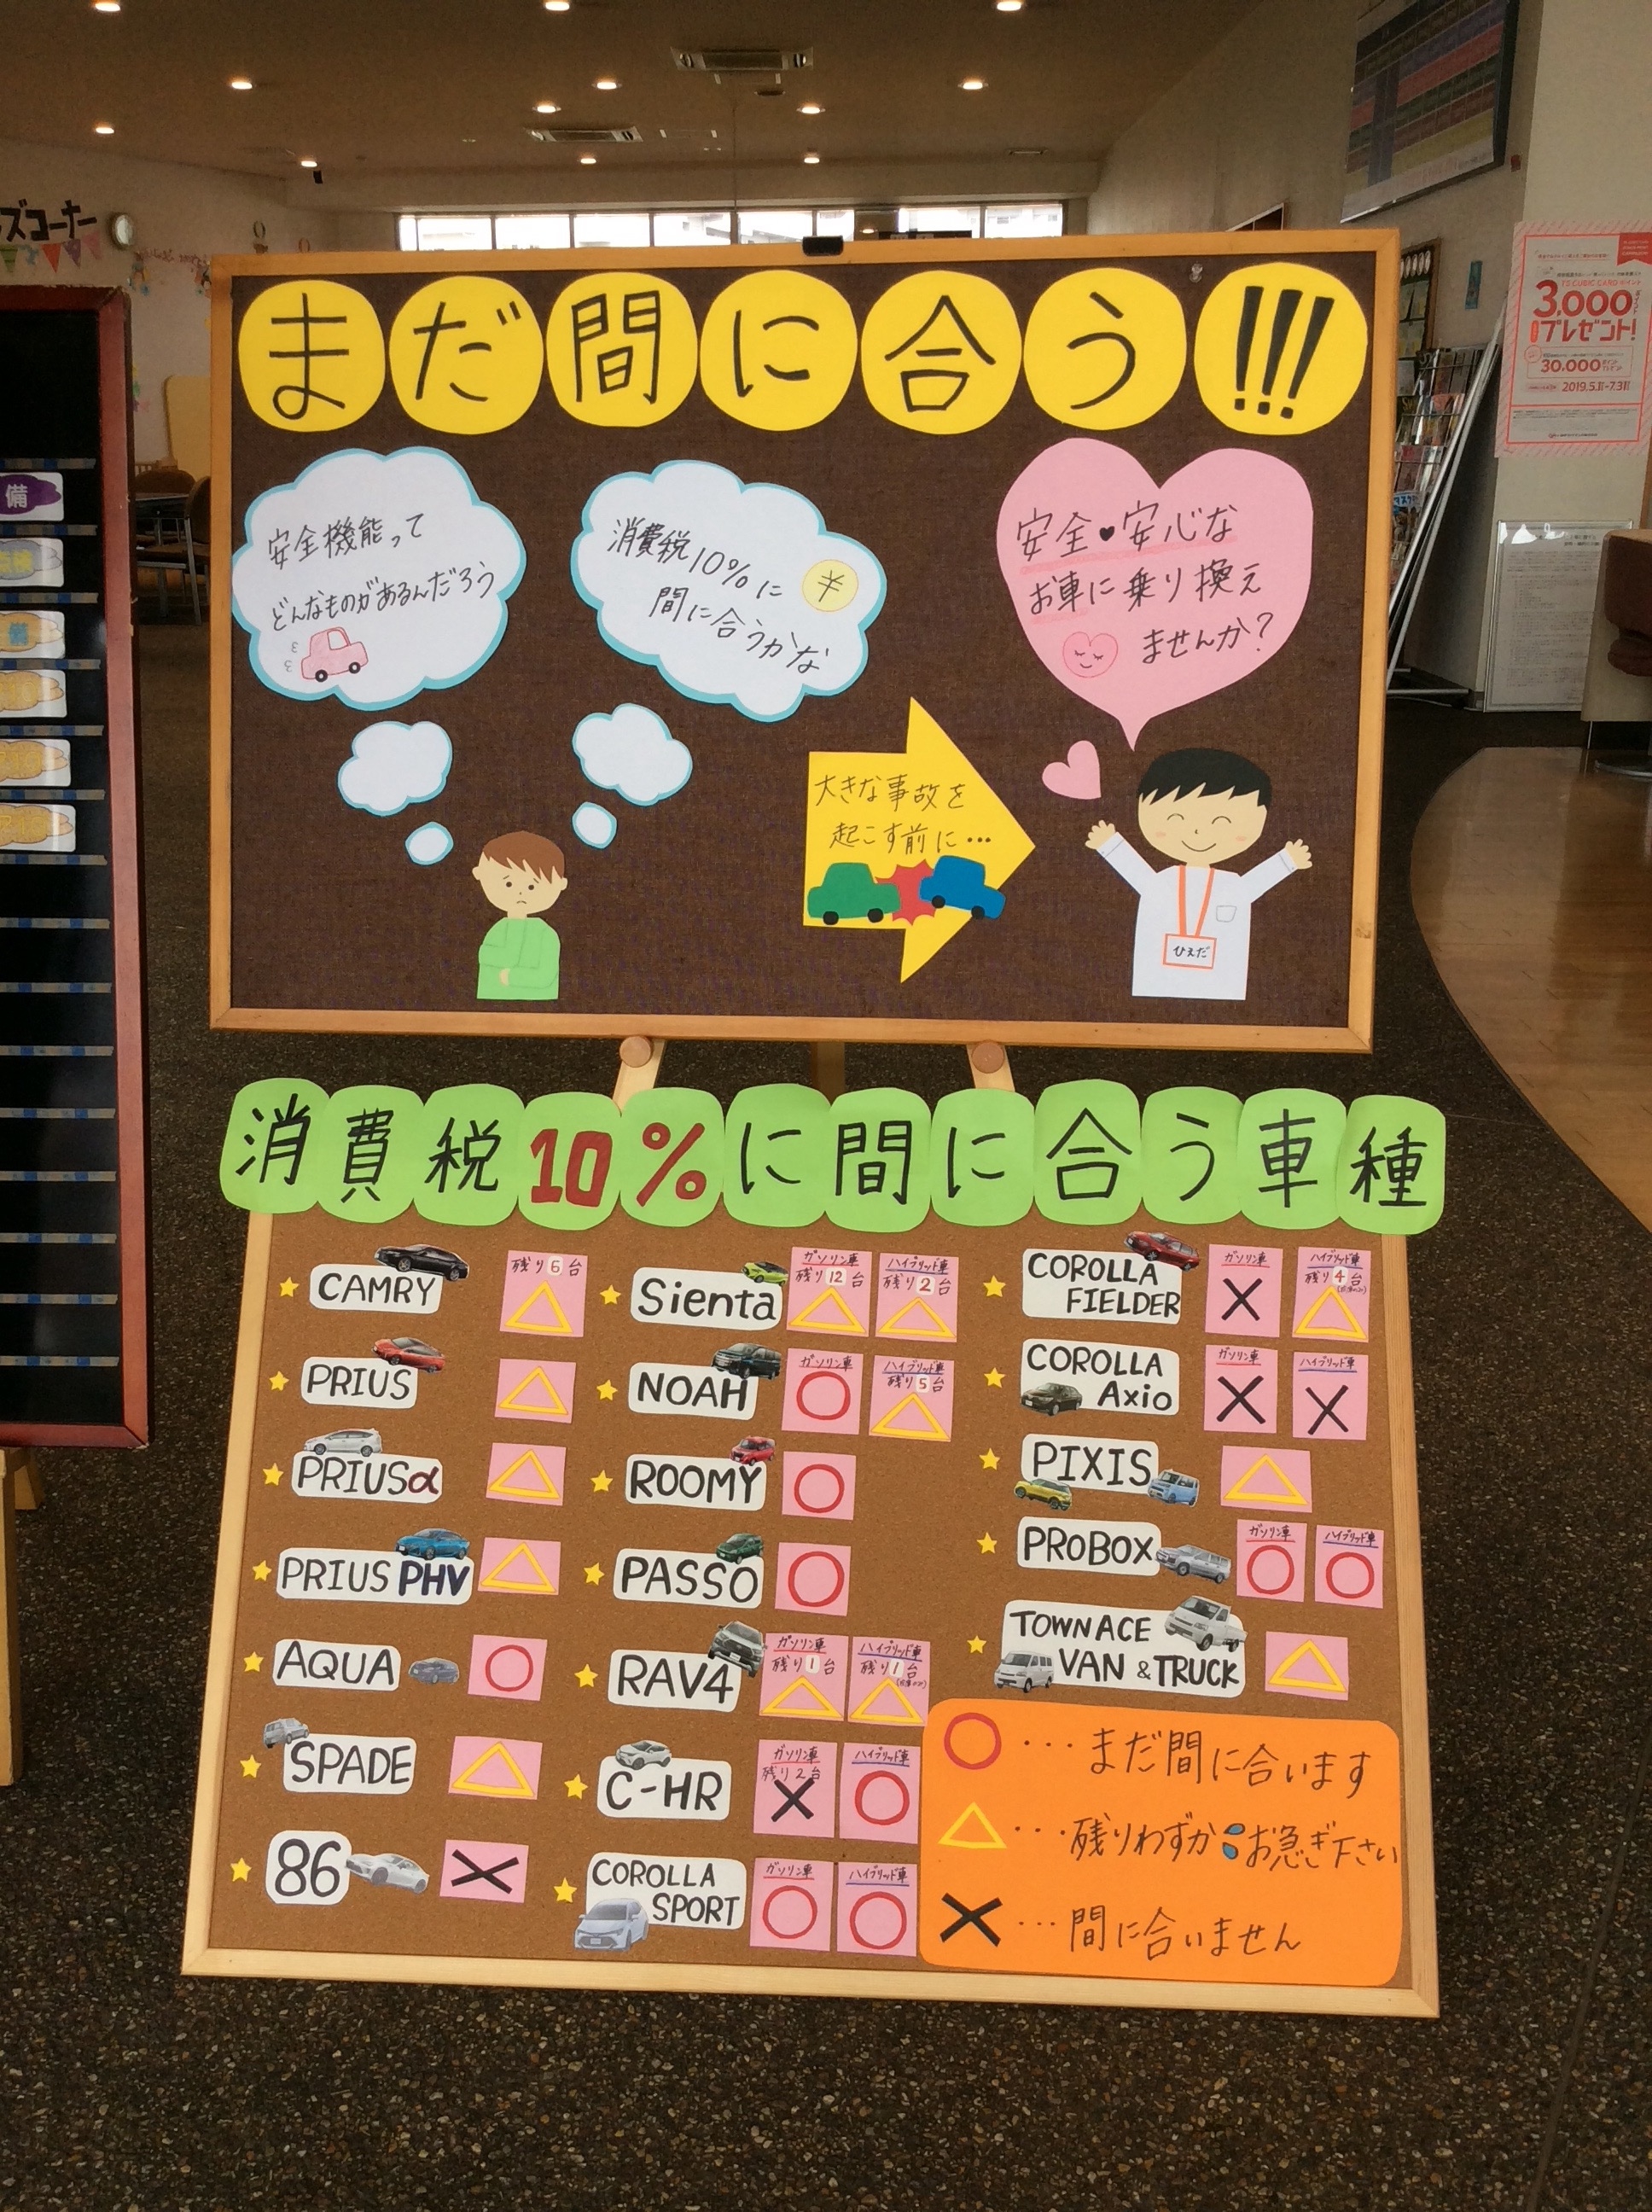 ズコーナー
まだ間に合う!!!
安全機能って
どんなものがあるんだろう
消費税10%に
間に合うかな
¥
安全♥安心な
お車に乗り換え
ませんか?
大きな事故を
起こす前に…
ひえだ
3,000
プレゼント!
30,000
2019.5.1-7.31
備
消費税10%に間に合う車種
CAMRY
残り6台
PRIUS
PRIUSα
PRIUS PHV
AQUA
SPADE
86
Sienta
ガソリン車
残り12台
ハイブリッド車
残り2台
NOAH
ガソリン車
ハイブリッド車
残り5台
ROOMY
PASSO
RAV4
ガソリン車
残り1台
ハイブリッド車
残り1台
C-HR
ガソリン車
残り2台
ハイブリッド車
COROLLA
SPORT
ガソリン車
ハイブリッド車
COROLLA
FIELDER
ガソリン車
ハイブリッド車
残り4台
COROLLA
Axio
ガソリン車
ハイブリッド車
PIXIS
PROBOX
ガソリン車
ハイブリッド車
TOWNACE
VAN & TRUCK
○…まだ間に合います
△…残りわずかお急ぎ下さい
×…間に合いません